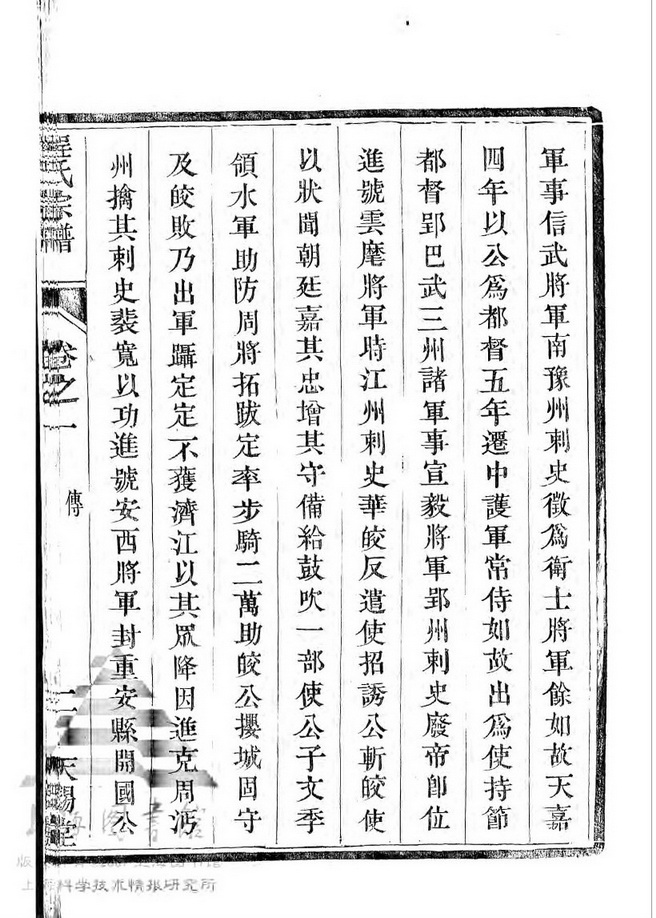 軍事信武將軍南豫州刺史徵爲衛士將軍餘如故天嘉
四年以公爲都督五年遷中護軍常侍如故出爲使持節
都督郢巴武三州諸軍事宣毅將軍郢州刺史廢帝卽位
進號雲麾將軍時江州刺史華皎反遣使招誘公斬皎使
以狀聞朝廷嘉其忠增其守備給鼓吹一部使公子文季
領水軍助防周將拓跋定率步騎二萬助皎公攖城固守
及皎敗乃出軍躡定定不獲濟江以其眾降因進克周沔
州擒其刺史裴寬以功進號安西將軍封重安縣開國公
程氏宗譜
卷之一
傳
天錫堂
上海圖書館
上海科学技术情报研究所